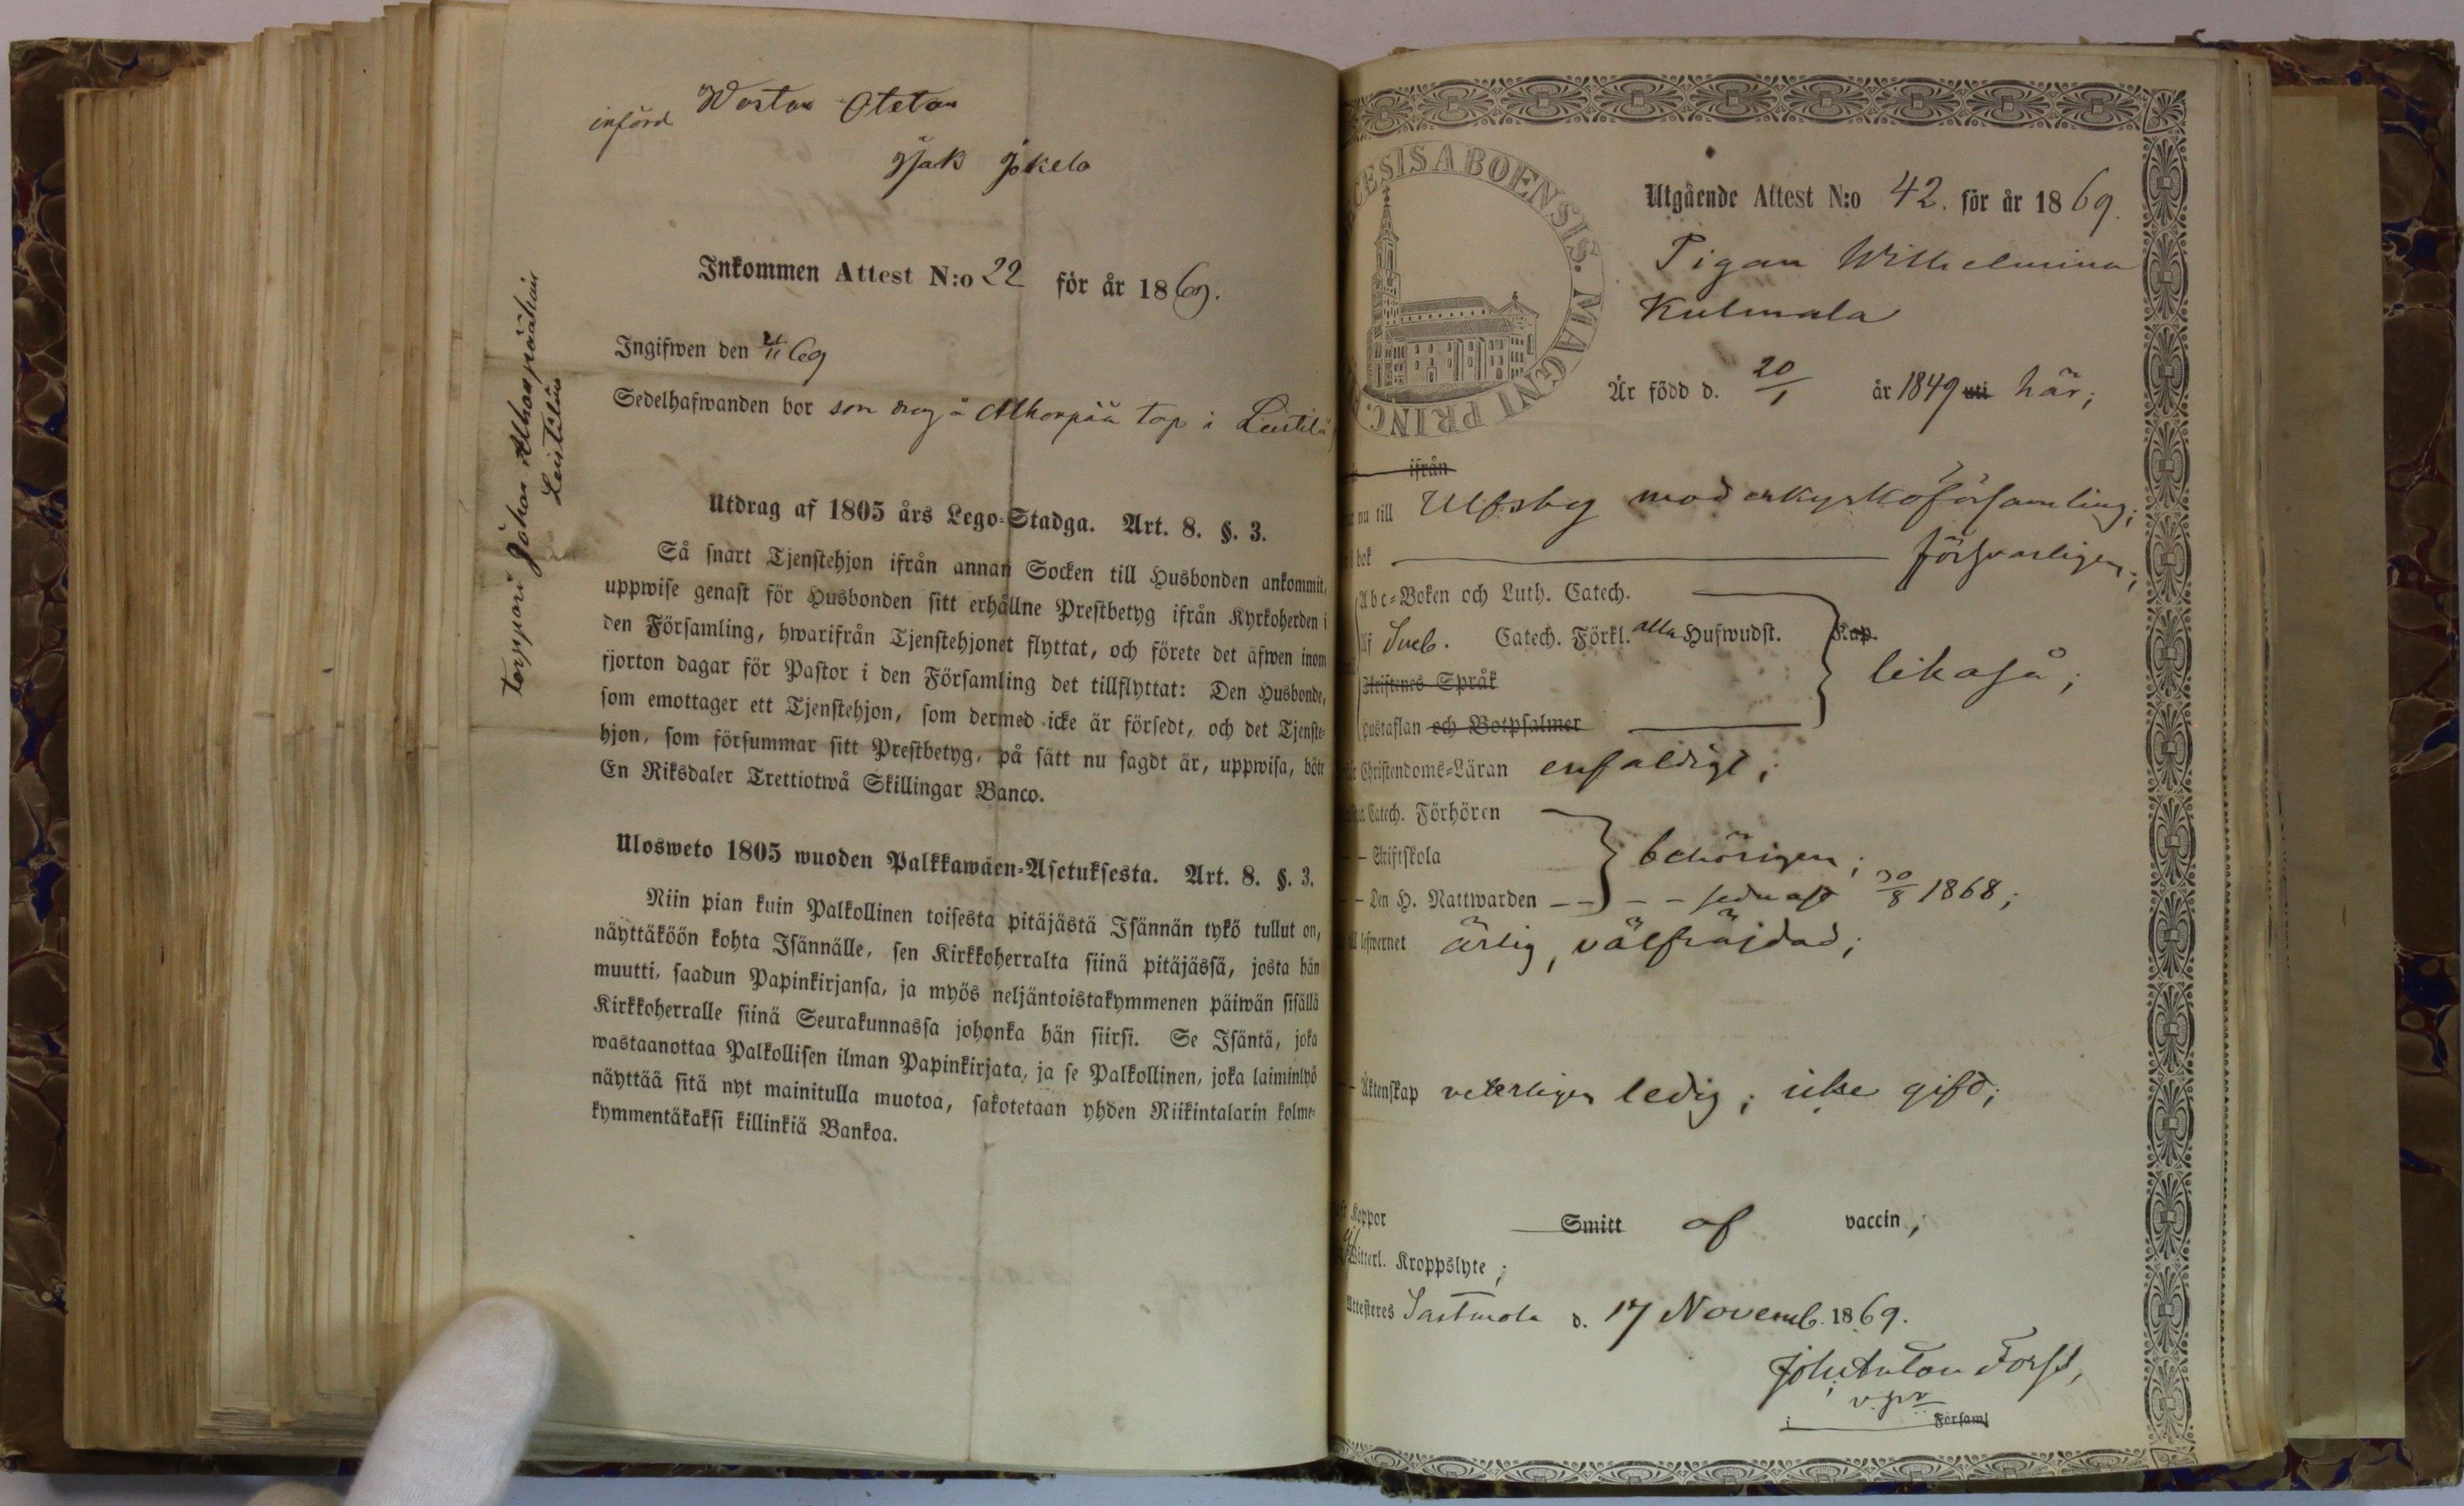 införd Wastan Otetan
Isak Jokela
Inkommen Attest N:o 22 för år 1869.
Ingifwen den 21/11 69
Sedelhafwanden bor som drag å Alhonpää torp i Leistilä
torppari Johan Alhonpäähän
Leistilän
Utdrag af 1805 års Lego-Stadga. Art. 8. §. 3.
Så snart Tjenstehjon ifrån annan Socken till Husbonden ankommit,
uppwise genast för Husbonden sitt erhållne Prestbetyg ifrån Kyrkoherden i
den Församling, hwarifrån Tjenstehjonet flyttat, och förete det äfwen inom
fjorton dagar för Pastor i den Församling det tillflyttat: Den Husbonde,
som emottager ett Tjenstehjon, som dermed icke är försedt, och det Tjenste-
hjon, som försummar sitt Prestbetyg, på sätt nu sagdt är, uppwisa, böte
En Riksdaler Trettiotwå Skillingar Banco.
Ulosweto 1805 wuoden Palkkawäen-Asetuksesta. Art. 8. §. 3.
Niin pian kuin Palkollinen toisesta pitäjästä Isännän tykö tullut on,
näyttäköön kohta Isännälle, sen Kirkkoherralta siinä pitäjässä, josta hän
muutti, saadun Papinkirjansa, ja myös neljäntoistakymmenen päiwän sisällä
Kirkkoherralle siinä Seurakunnassa johonka hän siirsi. Se Isäntä, joka
wastaanottaa Palkollisen ilman Papinkirjata, ja se Palkollinen, joka laiminlyö
näyttää sitä nyt mainitulla muotoa, sakotetaan yhden Riikintalarin kolme-
kymmentäkaksi killinkiä Bankoa.
CESIS ABOENSIS. MAGNI PRINC.
Utgående Attest N:o 42. för år 1869.
Pigan Wilhelmina
Kulmala
Är född d. 20/1 år 1849 uti här;
ifrån
nu till Ulfsby moderkyrkoförsamling;
bok försvarligen;
Abc-Boken och Luth. Catech.
Sveb. Catech. Förkl. alla Hufwudst. Kap.
likaså;
Skriftenes Språk
Hustaflan och Botpsalmer
Christendoms-Läran enfaldigt;
Catech. Förhören
Skriftskola behörigen;
Den H. Nattwarden - - - - sednast 30/8 1868;
lefwernet ärlig, välfräjdad;
Äktenskap veterligen ledig; icke gift;
Koppor Smitt af vaccin;
Witterl. Kroppslyte;
Attesteres Sastmola d. 17 Novemb. 1869.
Joh: Anton Forss,
v. pr
i Församl